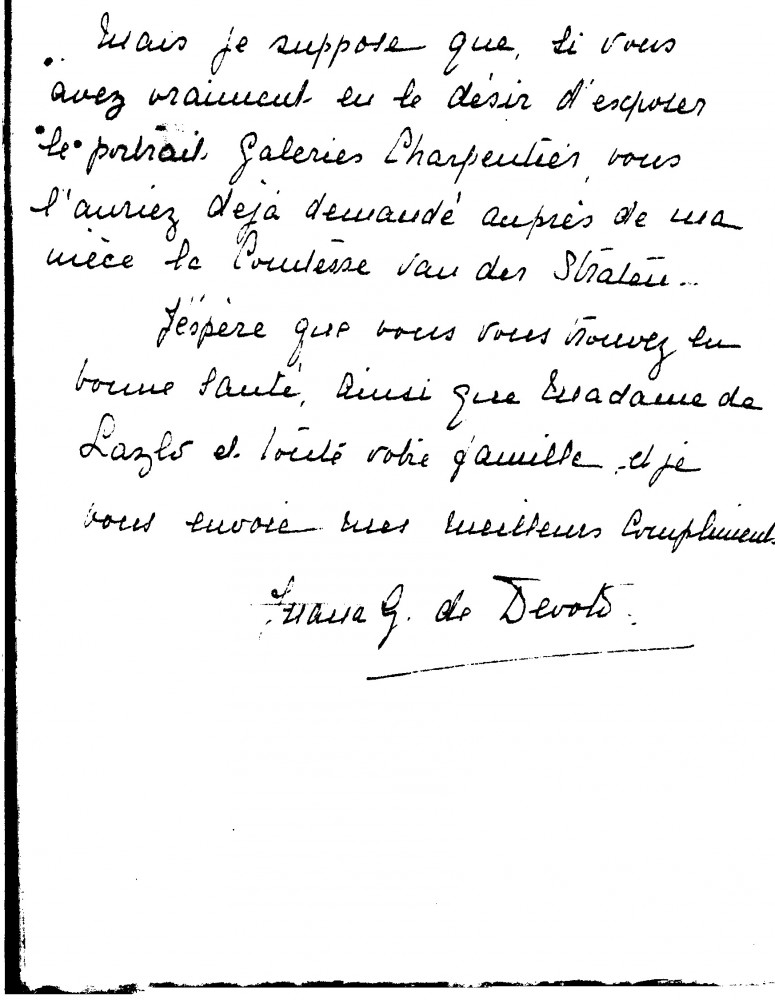 Mais je suppose que, si vous
avez vraiment eu le désir d'exposer
le portrait Galeries Charpentier, vous
l'auriez dejà demandé auprès de ma
nièce la Comtesse van der Straten..
J'éspère que vous vous trouvez en
bonne santé, ainsi que Madame de
Lazlo et toute votre famille, et je
vous envoie mes meilleurs compliments
Juana G. de Devoto.